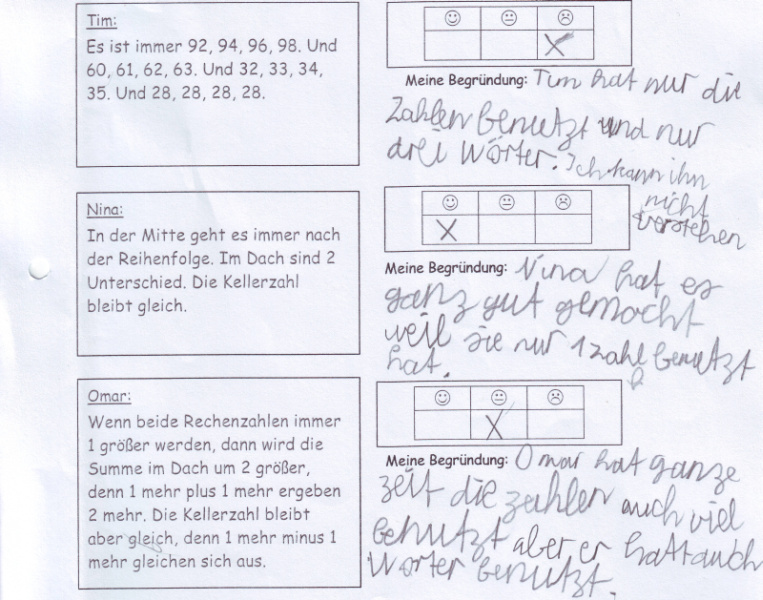 Tim:
Es ist immer 92, 94, 96, 98. Und
60, 61, 62, 63. Und 32, 33, 34,
35. Und 28, 28, 28, 28.
X
Meine Begründung: Tim hat nur die
Zahlen benutzt und nur
drei Wörter. Ich kann ihn
nicht
verstehen
Nina:
In der Mitte geht es immer nach
der Reihenfolge. Im Dach sind 2
Unterschied. Die Kellerzahl
bleibt gleich.
X
Meine Begründung: Nina hat es
ganz gut gemacht
weil sie nur 1 zahl benutzt
hat.
Omar:
Wenn beide Rechenzahlen immer
1 größer werden, dann wird die
Summe im Dach um 2 größer,
denn 1 mehr plus 1 mehr ergeben
2 mehr. Die Kellerzahl bleibt
aber gleich, denn 1 mehr minus 1
mehr gleichen sich aus.
X
Meine Begründung: Omar hat ganze
zeit die zahlen auch viel
benutzt aber er hatt auch
Wörter benutzt.